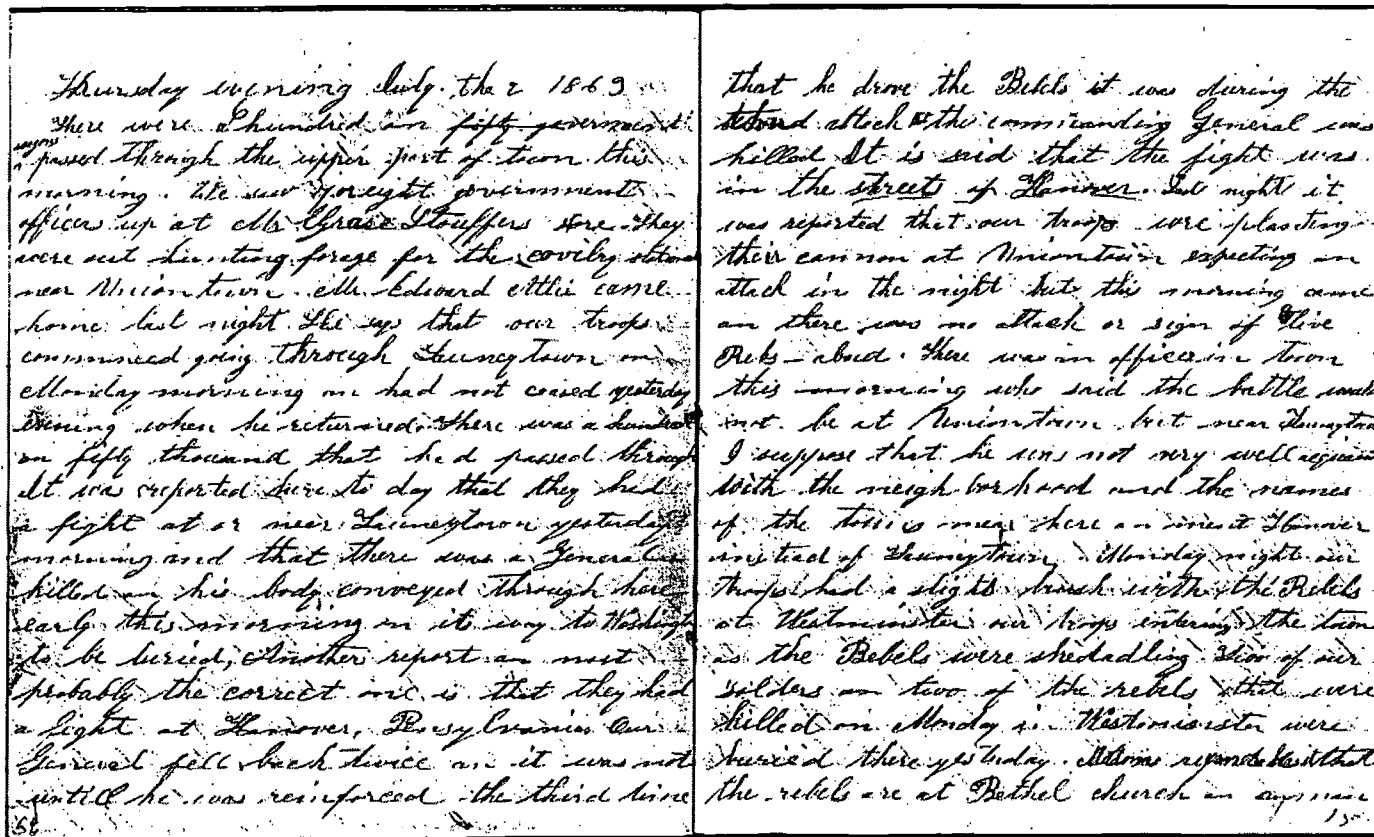 Thursday evening July the 2 1863
There were a hundred an fifty government
wagons passed through the upper part of town this
morning. We saw government
officers up at Mr Stouffers store. They
were out hunting forage for the
near Uniontown. Mr Edward came
home last night. He sys that our troops
commineced going through Tauneytown on
Monday morning an had not ceased yesterday
evening when he returned. There was a hundred
an fifty thousand that had passed through
It was reported here to day that they had
a fight at or near Tauneytown yesterday
morning and that there was a General
killed an his body conveyed through here
early this morning on it way to Washington
to be buried, Another report an most
probably the correct one is that they had
a fight at Hanover, Pensylvania Our
General fell back twice an it was not
untill he was reinforced the third time
that he drove the Rebels it was during the
attack the commanding General was
killed It is said that the fight was
in the streets of Hanover. night it
was reported that our troops were planting
their cannon at Uniontown expecting an
attack in the night but this morning came
an there was no attack or sign of live
Rebs. There was an officer in town
this morning who said the battle would
not be at Uniontown but near Tauneytown
I suppose that he was not very well
with the neighborhood and the names
of the towns near here an ment Hanover
instead of Tauneytown. Monday night our
troops had a slight brush with the Rebels
at Westminster our troops entering the town
as the Rebels were skedadling. Two of our
solders an two of the rebels that were
killed on Monday in Westminster were
buried there yesterday. that
the rebels are at Bethel church an